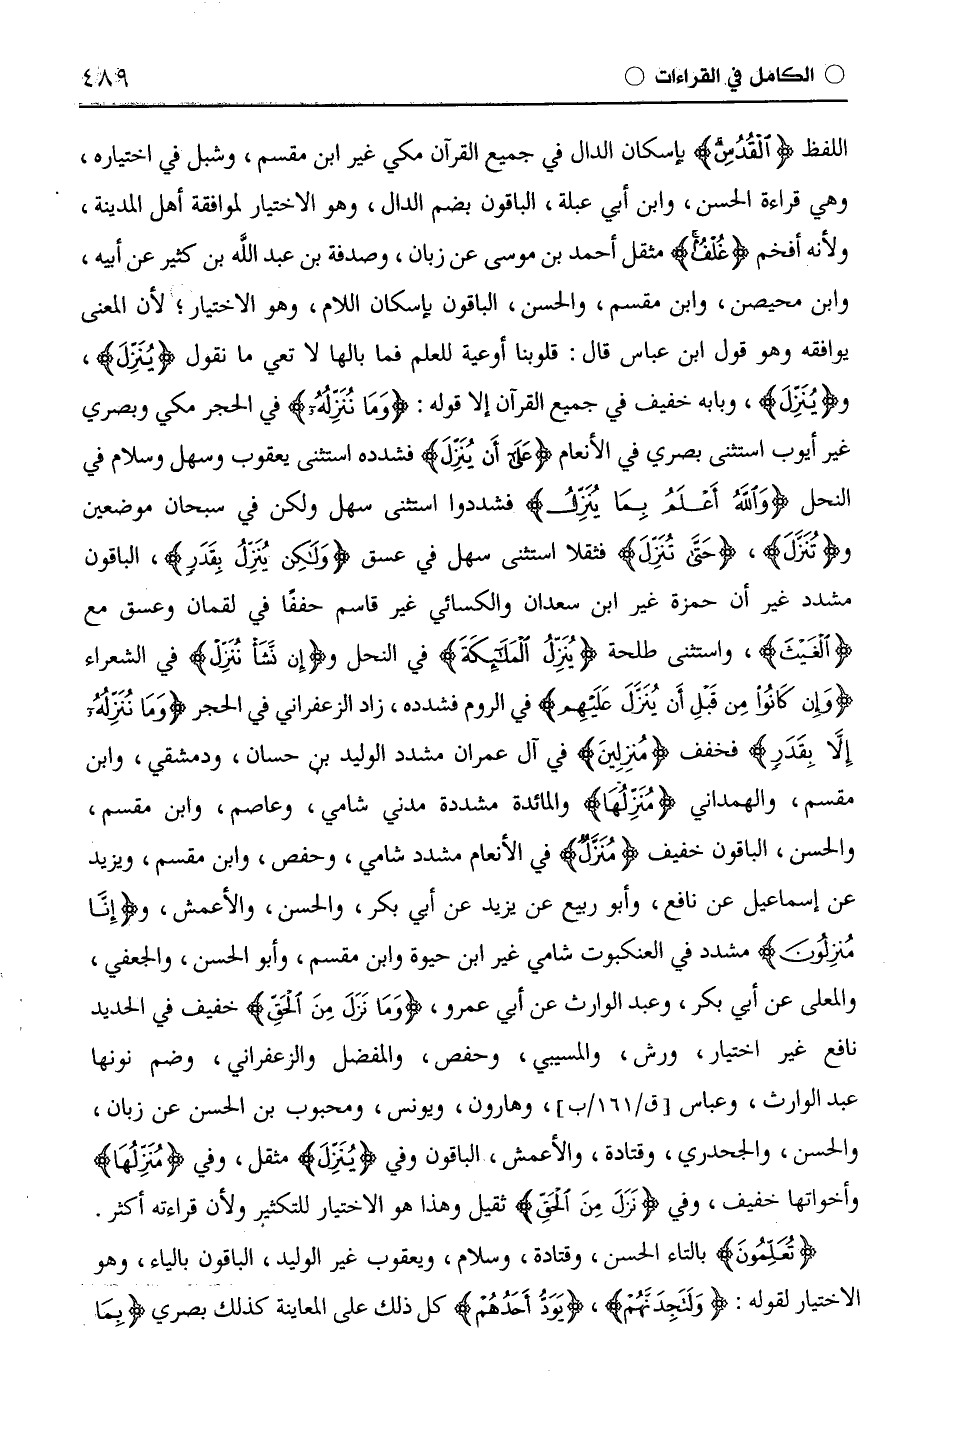 ○ الكامل في القراءات ○ ٤٨٩
اللفظ ﴿ٱلْقُدُسِ﴾ بإسكان الدال في جميع القرآن مكي غير ابن مقسم، وشبل في اختياره،
وهي قراءة الحسن، وابن أبي عبلة، الباقون بضم الدال، وهو الاختيار لموافقة أهل المدينة،
ولأنه أفخم ﴿غُلْفٌ﴾ مثقل أحمد بن موسى عن زبان، وصدفة بن عبد اللَّه بن كثير عن أبيه،
وابن محيصن، وابن مقسم، والحسن، الباقون بإسكان اللام، وهو الاختيار؛ لأن المعنى
يوافقه وهو قول ابن عباس قال: قلوبنا أوعية للعلم فما بالها لا تعي ما نقول ﴿يُنَزِّلَ﴾،
و﴿يُنَزِّلَ﴾، وبابه خفيف في جميع القرآن إلا قوله: ﴿وَمَا نُنَزِّلُهُۥٓ﴾ في الحجر مكي وبصري
غير أيوب استثنى بصري في الأنعام ﴿عَلَىٰٓ أَن يُنَزِّلَ﴾ فشدده استثنى يعقوب وسهل وسلام في
النحل ﴿وَٱللَّهُ أَعْلَمُ بِمَا يُنَزِّلُ﴾ فشددوا استثنى سهل ولكن في سبحان موضعين
و﴿نُنَزِّلَ﴾، ﴿حَتَّىٰ تُنَزِّلَ﴾ فثقلا استثنى سهل في عسق ﴿وَلَٰكِن يُنَزِّلُ بِقَدَرٍ﴾، الباقون
مشدد غير أن حمزة غير ابن سعدان والكسائي غير قاسم حففًا في لقمان وعسق مع
﴿ٱلْغَيْثَ﴾، واستثنى طلحة ﴿يُنَزِّلُ ٱلْمَلَٰٓئِكَةَ﴾ في النحل و﴿إِن نَّشَأْ نُنَزِّلْ﴾ في الشعراء
﴿وَإِن كَانُوا۟ مِن قَبْلِ أَن يُنَزَّلَ عَلَيْهِم﴾ في الروم فشدده، زاد الزعفراني في الحجر ﴿وَمَا نُنَزِّلُهُۥٓ
إِلَّا بِقَدَرٍ﴾ فخفف ﴿مُنزَلِينَ﴾ في آل عمران مشدد الوليد بن حسان، ودمشقي، وابن
مقسم، والهمداني ﴿مُنَزِّلُهَا﴾ والمائدة مشددة مدني شامي، وعاصم، وابن مقسم،
والحسن، الباقون خفيف ﴿مُنَزَّلٌ﴾ في الأنعام مشدد شامي، وحفص، وابن مقسم، ويزيد
عن إسماعيل عن نافع، وأبو ربيع عن يزيد عن أبي بكر، والحسن، والأعمش، و﴿إِنَّا
مُنزِلُونَ﴾ مشدد في العنكبوت شامي غير ابن حيوة وابن مقسم، وأبو الحسن، والجعفي،
والمعلى عن أبي بكر، وعبد الوارث عن أبي عمرو، ﴿وَمَا نَزَلَ مِنَ ٱلْحَقِّ﴾ خفيف في الحديد
نافع غير اختيار، ورش، والمسيبي، وحفص، والمفضل والزعفراني، وضم نونها
عبد الوارث، وعباس [ق/١٦١/ب]، وهارون، ويونس، ومحبوب بن الحسن عن زبان،
والحسن، والجحدري، وقتادة، والأعمش، الباقون وفي ﴿يُنَزِّلَ﴾ مثقل، وفي ﴿مُنَزِّلُهَا﴾
وأخواتها خفيف، وفي ﴿نَزَلَ مِنَ ٱلْحَقِّ﴾ ثقيل وهذا هو الاختيار للتكثير ولأن قراءته أكثر.
﴿تُعَلِّمُونَ﴾ بالتاء الحسن، وقتادة، وسلام، ويعقوب غير الوليد، الباقون بالياء، وهو
الاختيار لقوله: ﴿وَلَتَجِدَنَّهُمْ﴾، ﴿يَوَدُّ أَحَدُهُمْ﴾ كل ذلك على المعاينة كذلك بصري ﴿بِمَا